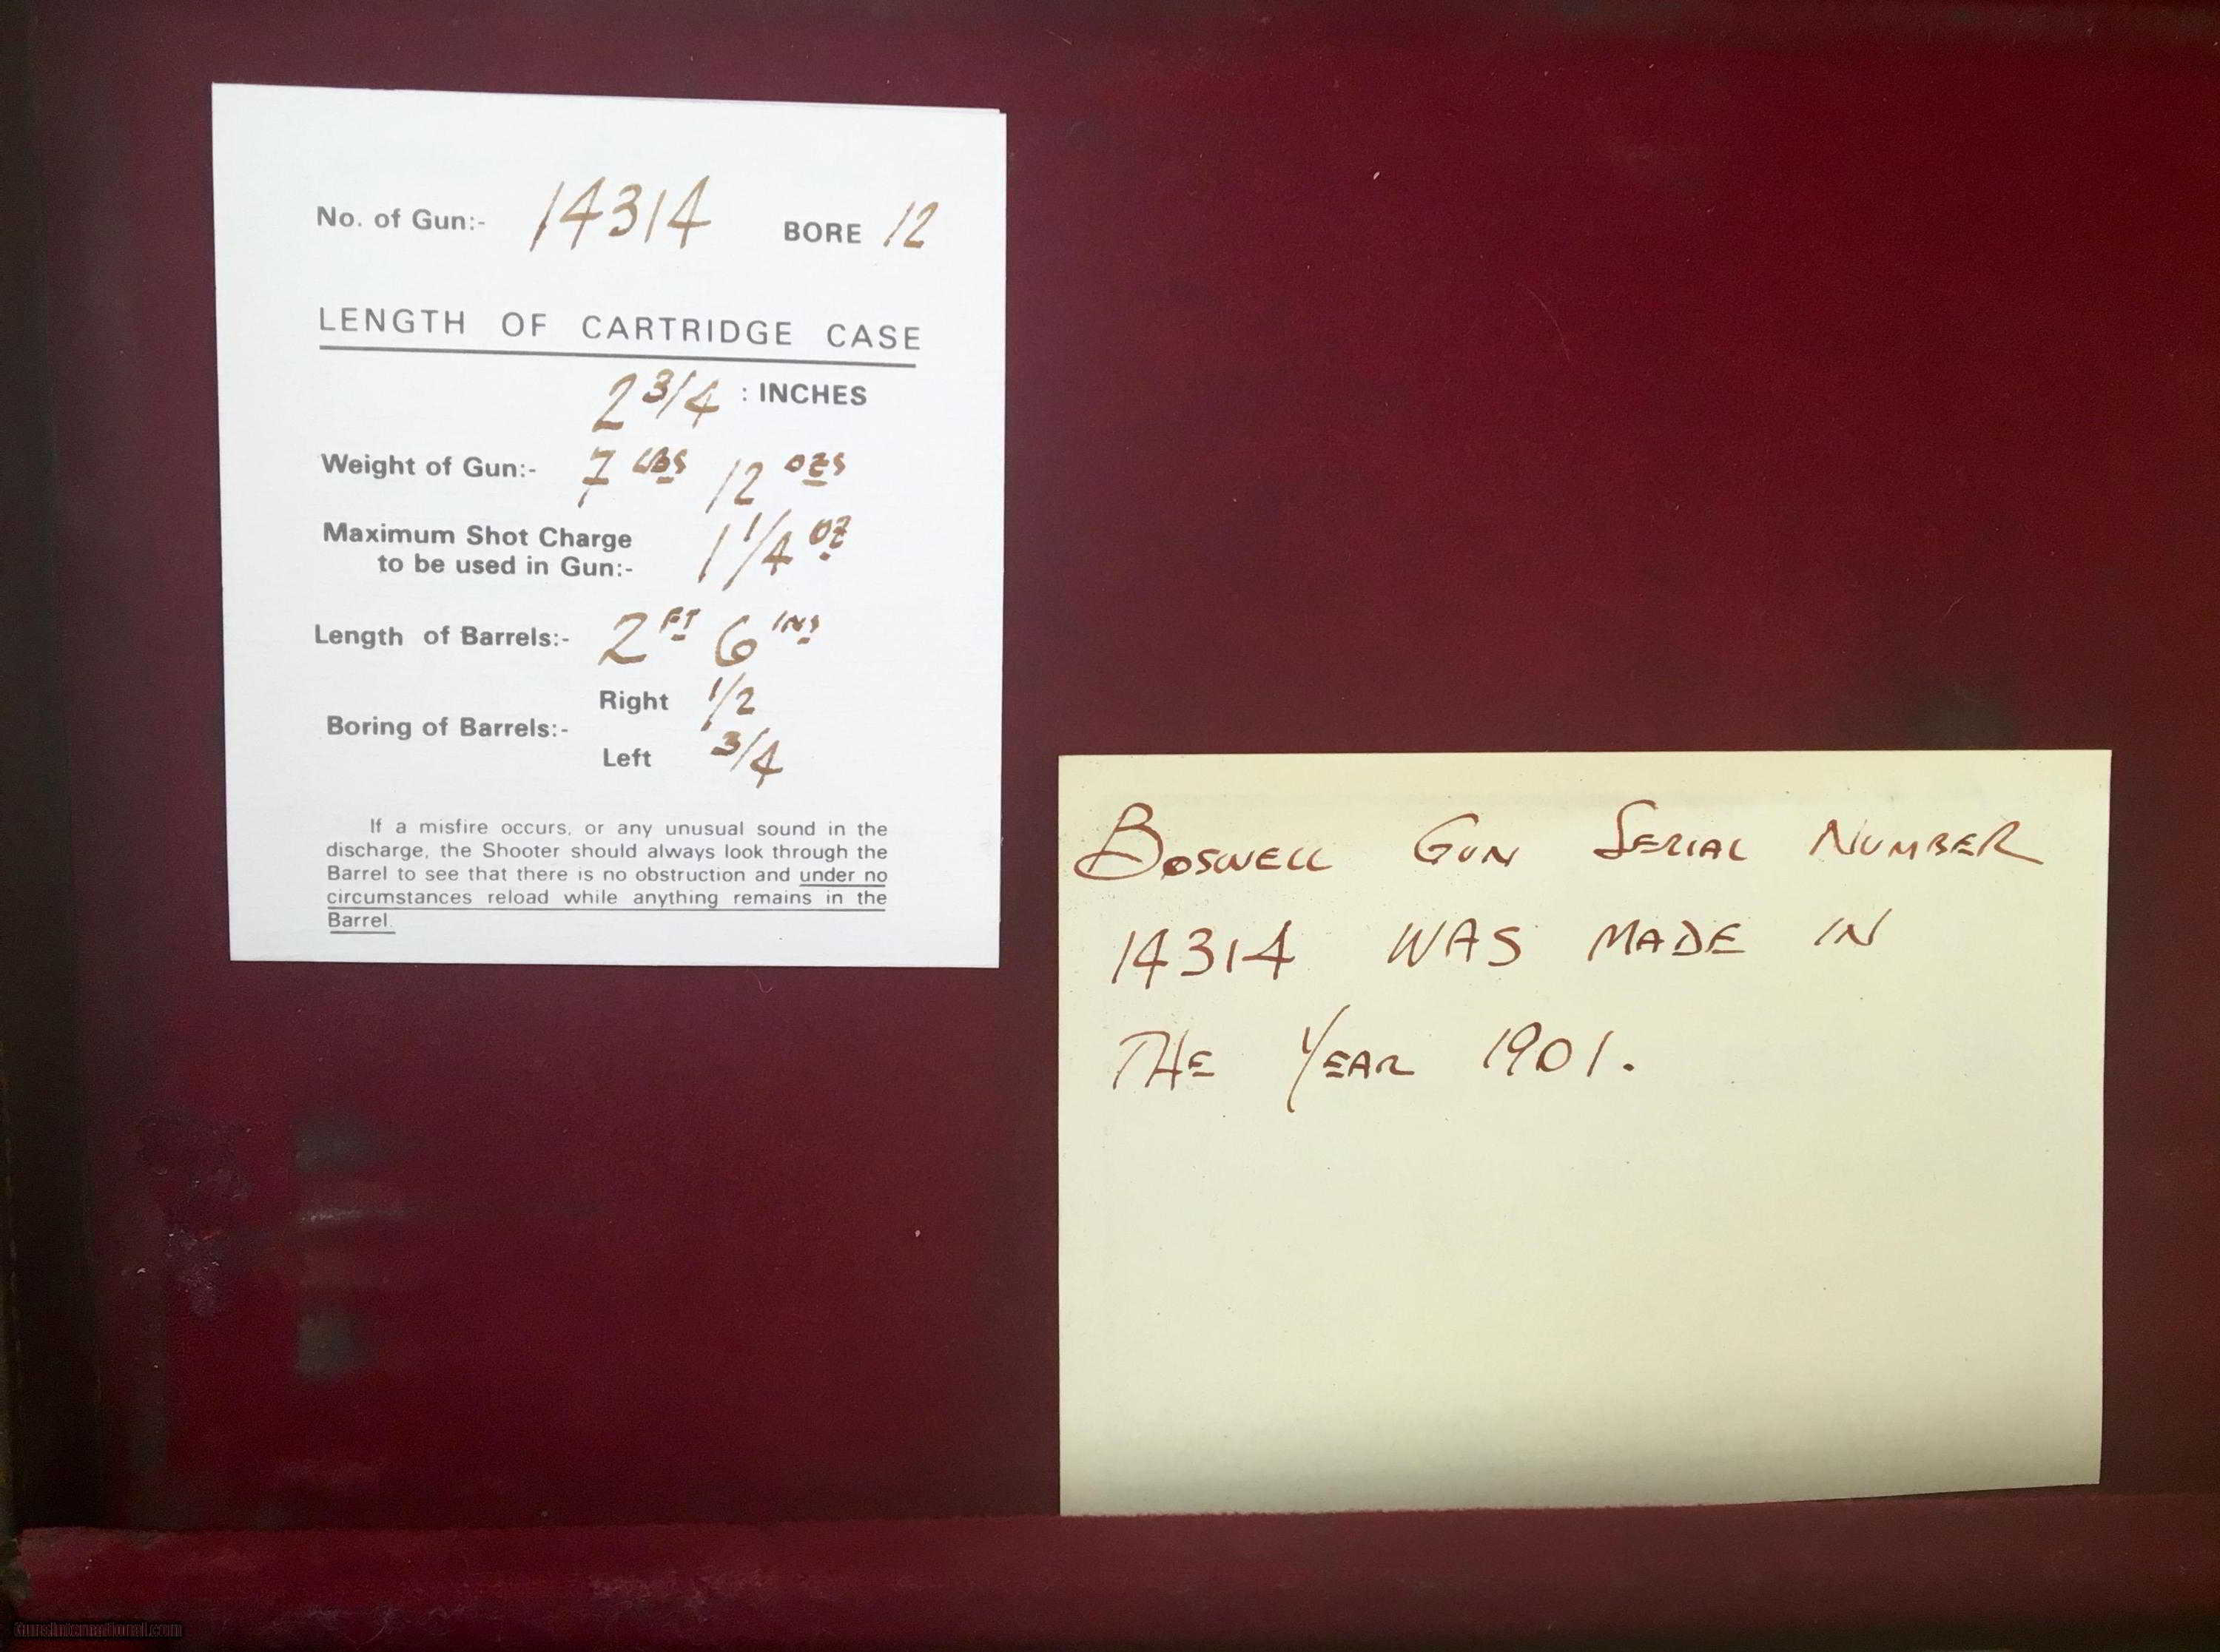 No. of Gun:- 14314 BORE 12
LENGTH OF CARTRIDGE CASE
2 3/4 : INCHES
Weight of Gun:- 7 LBS 12 OZS
Maximum Shot Charge
to be used in Gun:- 1 1/4 OZ
Length of Barrels:- 2 FT 6 INS
Right 1/2
Boring of Barrels:-
Left 3/4
If a misfire occurs, or any unusual sound in the
discharge, the Shooter should always look through the
Barrel to see that there is no obstruction and under no
circumstances reload while anything remains in the
Barrel.
BOSWELL GUN SERIAL NUMBER
14314 WAS MADE IN
THE YEAR 1901.
GunsInternational.com